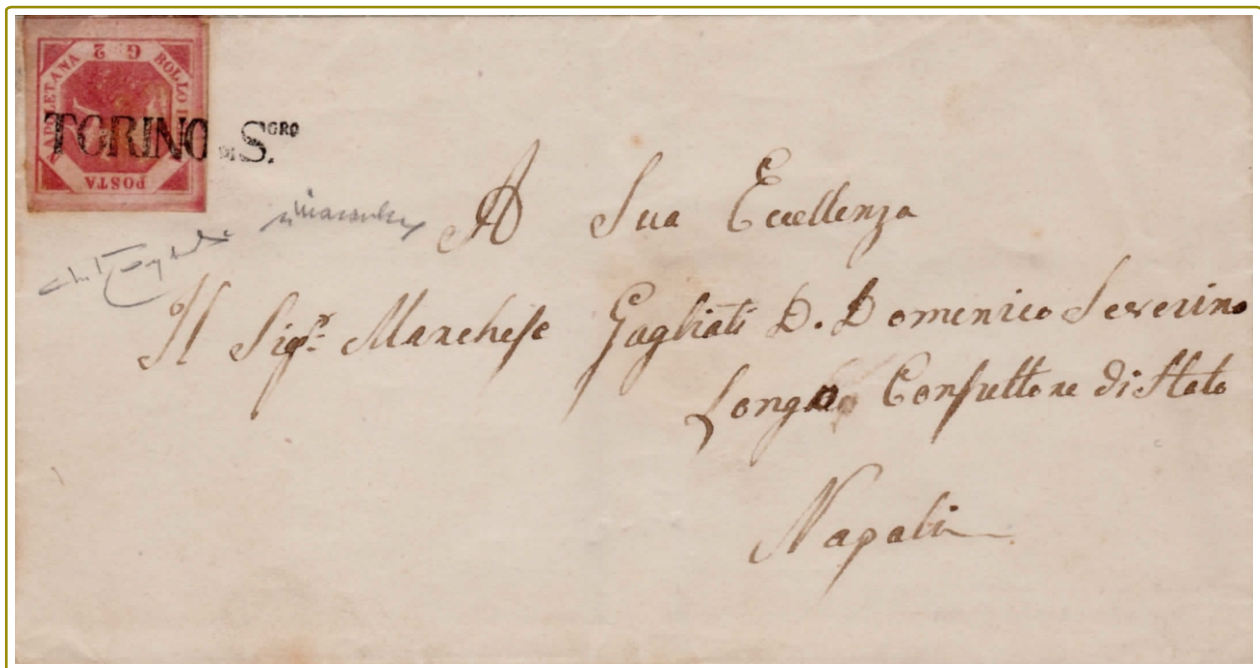 G 2
BOLLO
POSTA
TORINO DI S.GRO
A Sua Eccellenza
Il Sigr: Marchese Gagliati D. Domenico Severino
Longo Consultore di Stato
Napoli